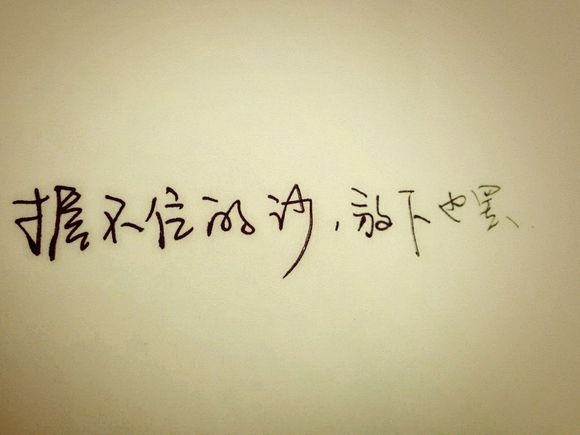 握不住的沙，放下也罢